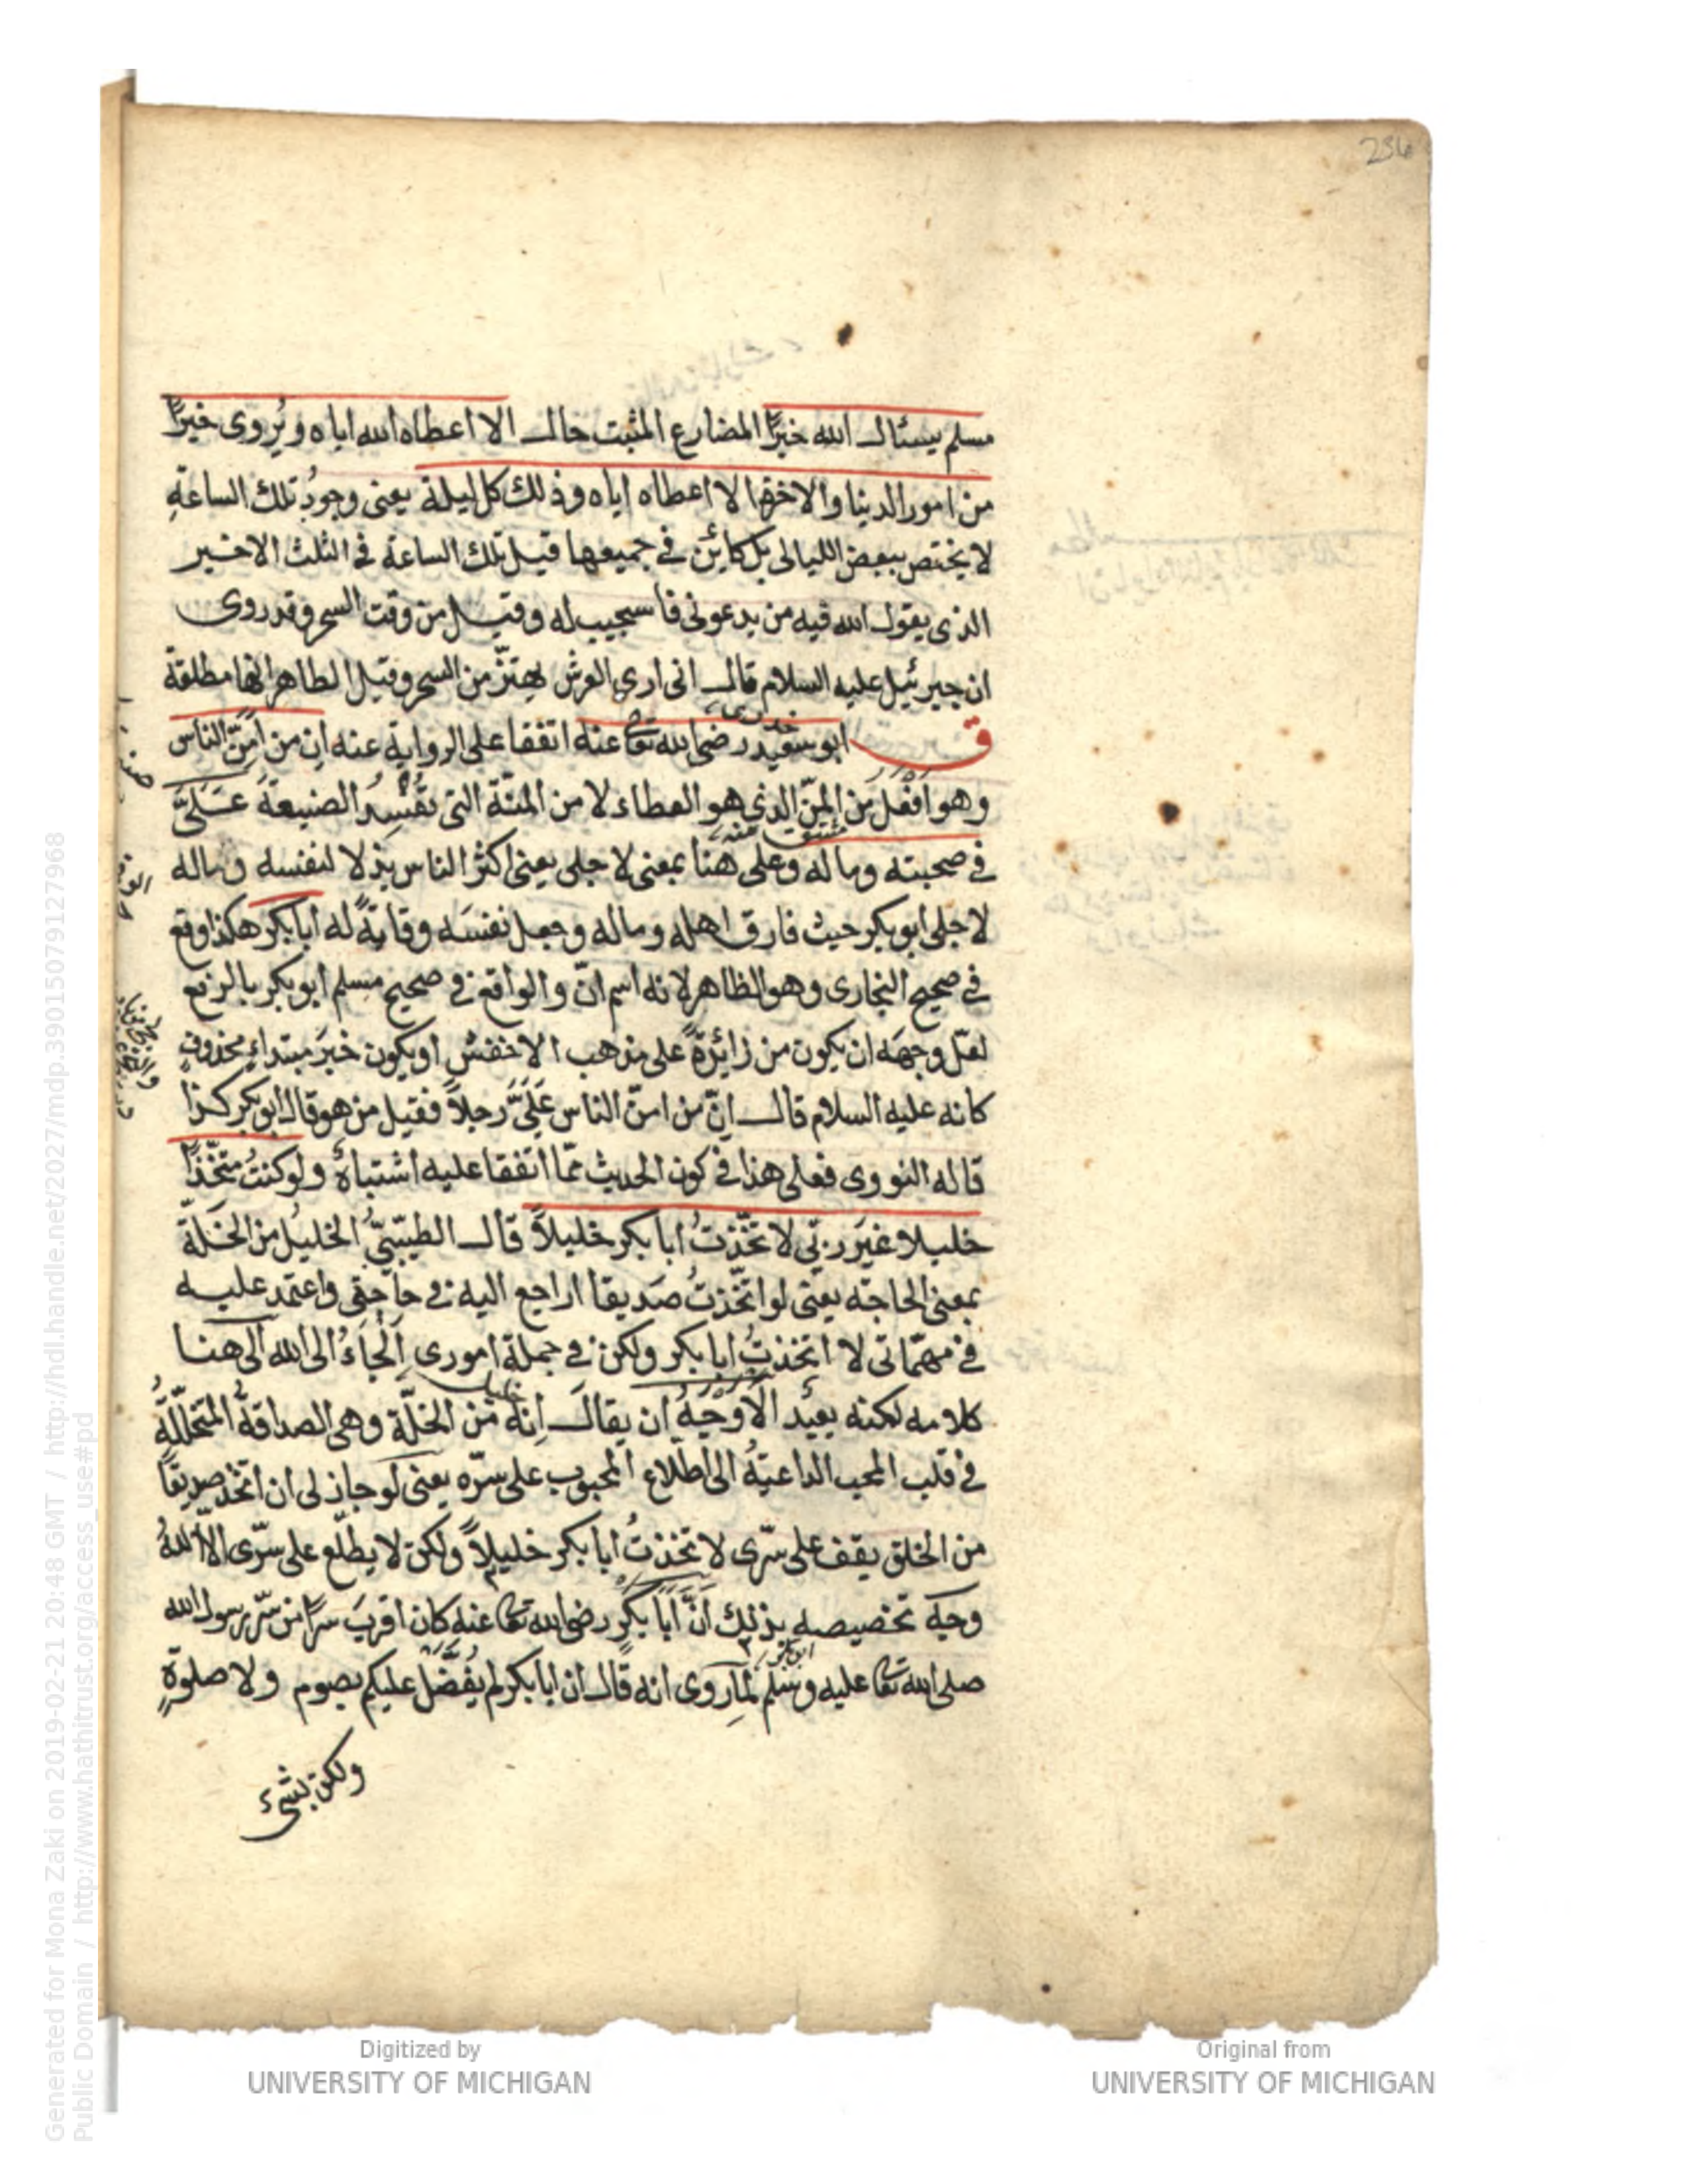 236
مسلم يسئال الله خيرًا المضارع المثبت حال الا اعطاه الله اياه ويُروى خيرًا
من امور الدنيا والاخرة الا اعطاه اياه وذلك كل ليلة يعنى وجودُ تلك الساعةِ
لا يختص ببعض الليالى بل كائن فى جميعها قيل تلك الساعة فى الثلث الاخير
الذى يقول الله فيه من يدعونى فاستجيب له وقيل من وقت السحر وقد روى
ان جبرئيل عليه السلام قال انى ارى العرش يهتزّ من السحر وقيل الظاهر انها مطلقة
ق ابو سعيد خدرى رضى الله تعا عنه اتفقا على الرواية عنه ان من اَمَنّ الناس
وهو اَفْعَل من المنّ الذى هو العطاء لا من المنّة التى تُفْسِدُ الصنيعةَ عَلَىَّ
فى صحبته وماله وعلى هنا بمعنى لاجلى يعنى اكثر الناس بذلا لنفسه وماله
لاجلى ابو بكر حيث فارق اهله وماله وجعل نفسَه وقايةً له ابا بكر هكذا وقع
فى صحيح البخارى وهو الظاهر لانه اسم انّ والواقع فى صحيح مسلم ابو بكر بالرفع
لعلّ وجهَه ان يكون من زائدةً على مذهب الاخفش او يكون خبرَ مبتداءٍ محذوفٍ
كانه عليه السلام قال انّ من امنّ الناس عَلَىَّ رجلاً فقيل من هو قال ابو بكر كذا
قاله النووى فعلى هذا فى كون الحديث ممّا اتفقا عليه اشتباهٌ ولو كنتُ متخّذًا
خليلا غيرَ ربّى لاتخّذتُ ابا بكر خليلاً قال الطيّبىّ الخليلُ من الخَلّة
بمعنى الحاجة يعنى لو اتخّذتُ صَديقا اراجع اليه فى حاجتى واعتمد عليه
فى مهمّاتى لا اتخذتُ ابا بكر ولكن فى جملة امورى اَلْجاءُ الى الله الى هنا
كلامه لكنه بعيد الاَوْجَهُ ان يقالَ اِنه من الخلّة وهى الصداقةُ المتخلّلةُ
فى قلب المحب الداعيةُ الى اطلاع المحبوب على سرّه يعنى لو جاز لى ان اتخذ صديقًا
من الخلق يقف على سرّى لاتخذتُ ابا بكر خليلاً ولكن لا يطلّع على سرّى الاّ اللهُ
وجه تخصيصه بذلك اَنَّ اَبا بكرٍ رضى الله تعا عنه كان اقربَ سرًّا من سرّ رسول الله
صلى الله تعا عليه وسلم لما روى انه قال ان ابا بكر لم يُفَضَّلْ عليكم بصوم ولا صلوةٍ
ولكن بشىء
Generated for Mona Zaki on 2019-02-21 20:48 GMT / http://hdl.handle.net/2027/mdp.39015079127968
Public Domain / http://www.hathitrust.org/access_use#pd
Digitized by
UNIVERSITY OF MICHIGAN
Original from
UNIVERSITY OF MICHIGAN